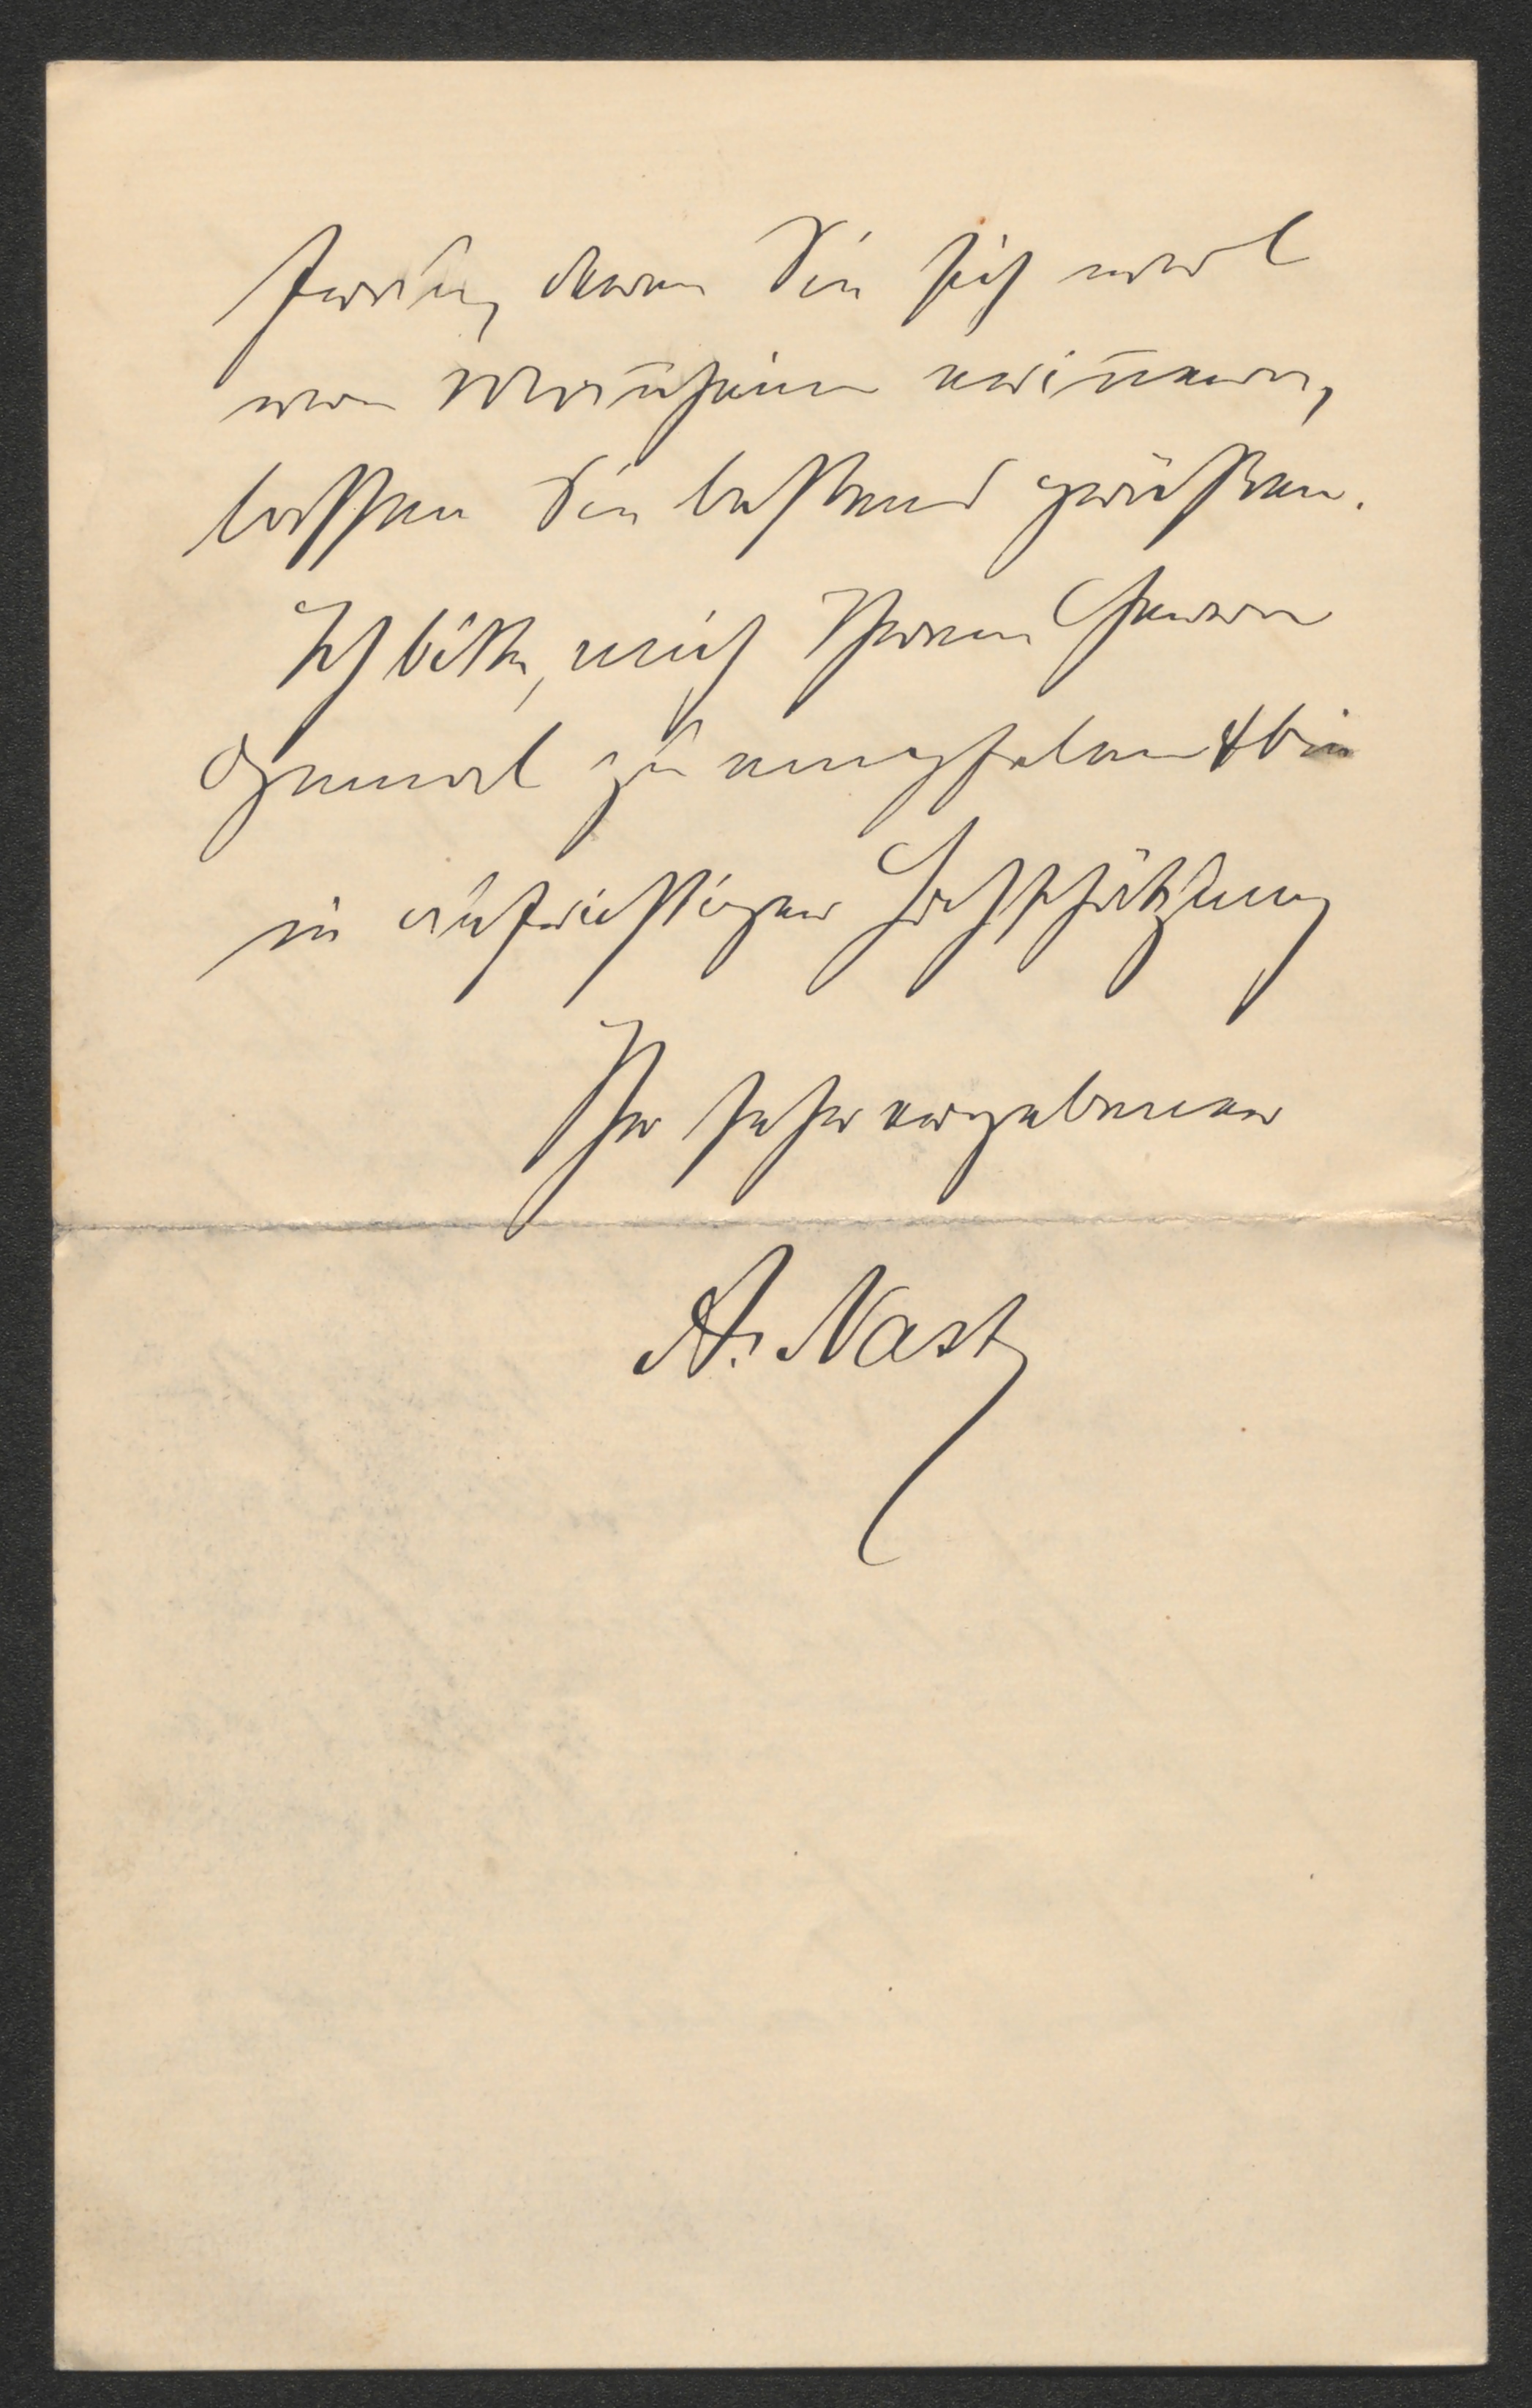 Frau, deren Sie sich wol
von Mañheim eriñern,
lassen Sie bestens grüßen.
Ich bitte, mich Ihrem Herrn
Gemal zu empfelen & bin
in aufrichtiger Hochschätzung
Ihr sehr ergebener
A. Nast